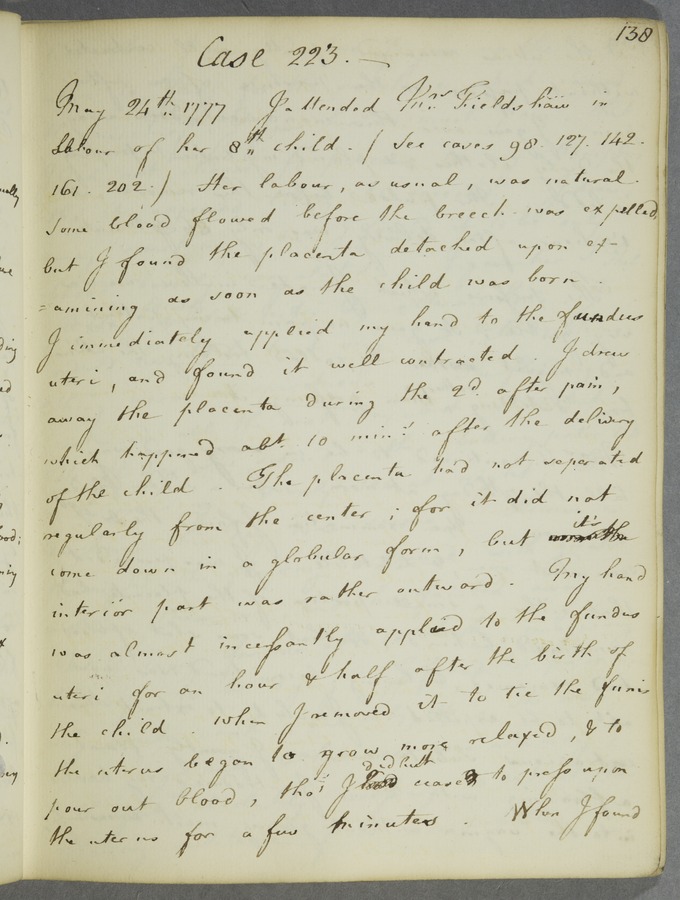 138
Case 223. —
May 24th 1777 I attended Mrs. Fieldshaw in
labour of her 8th child. ( See cases 98. 127. 142.
161. 202. ) Her labour, as usual, was natural.
Some blood flowed before the breech was expelled,
but I found the placenta detached upon ex-
=amining as soon as the child was born.
I immediately applied my hand to the fundus
uteri, and found it well contracted. I drew
away the placenta during the 2d. after pain,
which happened abt. 10 mins. after the delivery
of the child. The placenta had not separated
regularly from the center; for it did not
come down in a globular form, but it's
interior part was rather outward. My hand
was almost incessantly applied to the fundus
uteri for an hour & half after the birth of
the child. When I removed it to tie the funis
the uterus began to grow more relaxed, & to
pour out blood, tho' I did but cease to press upon
the uterus for a few minutes. When I found